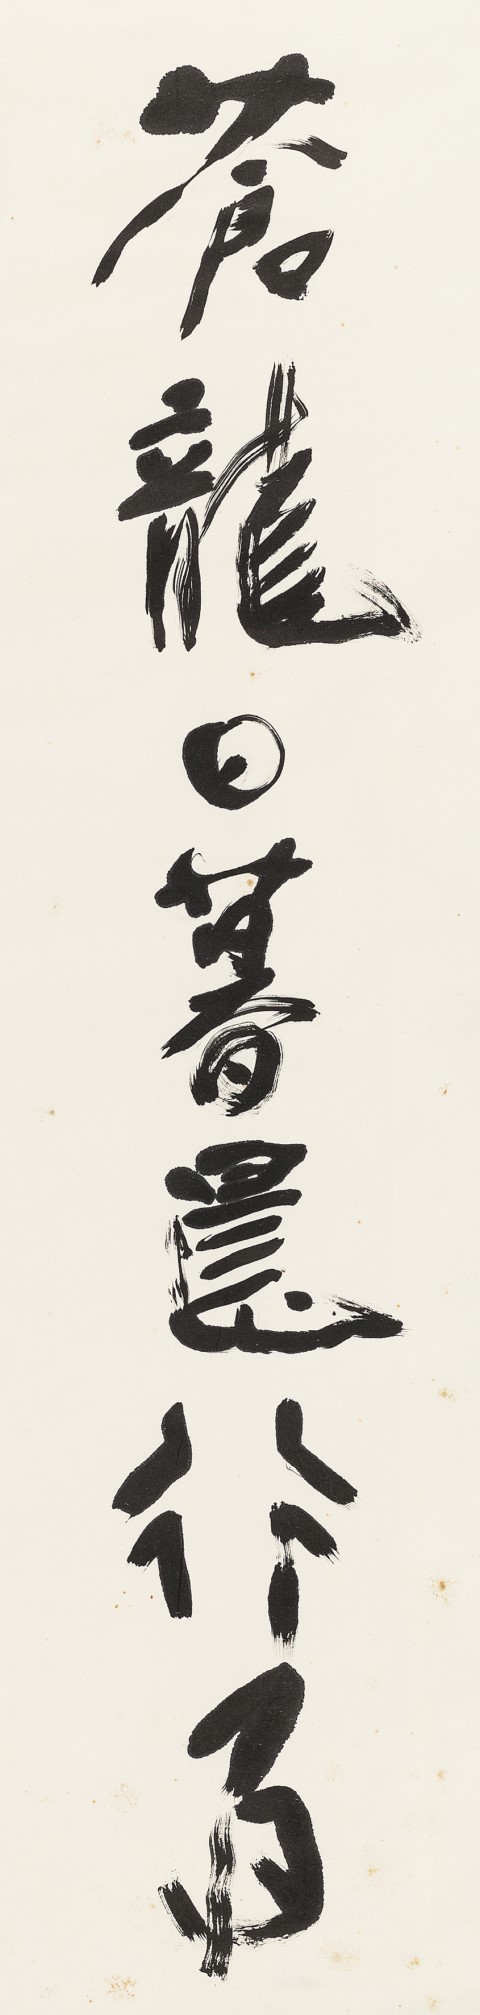 蒼龍日暮還行雨